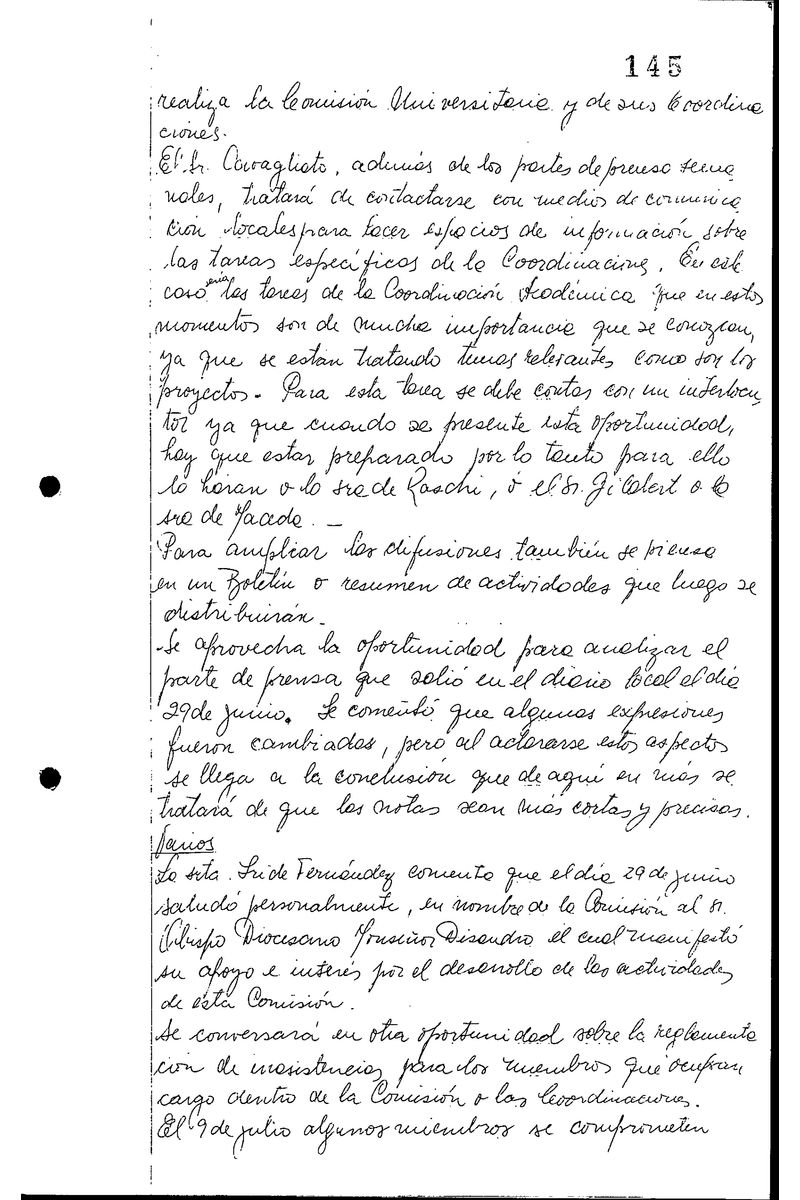 145
realiza la Comisión Universitaria y de sus Coordina
ciones.
El Sr. Cavagliato, además de los partes de prensa sema
nales, tratará de contactarse con medios de comunica
ción locales para hacer espacios de información sobre
las tareas específicas de la Coordinaciones. En este
caso sería las tareas de la Coordinación Académica que en estos
momentos son de mucha importancia que se conozcan,
ya que se estan tratando temas relevantes como son los
proyectos. Para esta tarea se debe contar con un interlocu
tor ya que cuando se presente esta oportunidad,
hay que estar preparado por lo tanto para ello
lo haran o la sra de Raschi, ó el Sr. Gilabert o la
sra de
Para ampliar las difusiones también se piensa
en un Boletín o resumen de actividades que luego se
distribuirán.
Se aprovecha la oportunidad para analizar el
parte de prensa que salió en el diario local el día
29 de junio. Se comentó que algunas expresiones
fueron cambiadas, pero al aclararse estos aspectos
se llega a la conclusión que de aquí en más se
tratará de que las notas sean más cortas y precisas.
Varios
La srta. Fernández comenta que el día 29 de junio
saludó personalmente, en nombre de la Comisión al Sr.
Obispo Diocesano Monseñor Disandro el cual manifestó
su apoyo e interés por el desarrollo de las actividades
de esta Comisión.
Se conversará en otra oportunidad sobre la reglamenta
ción de inasistencias para los miembros que ocupan
cargo dentro de la Comisión o las Coordinaciones.
El 9 de julio algunos miembros se comprometen